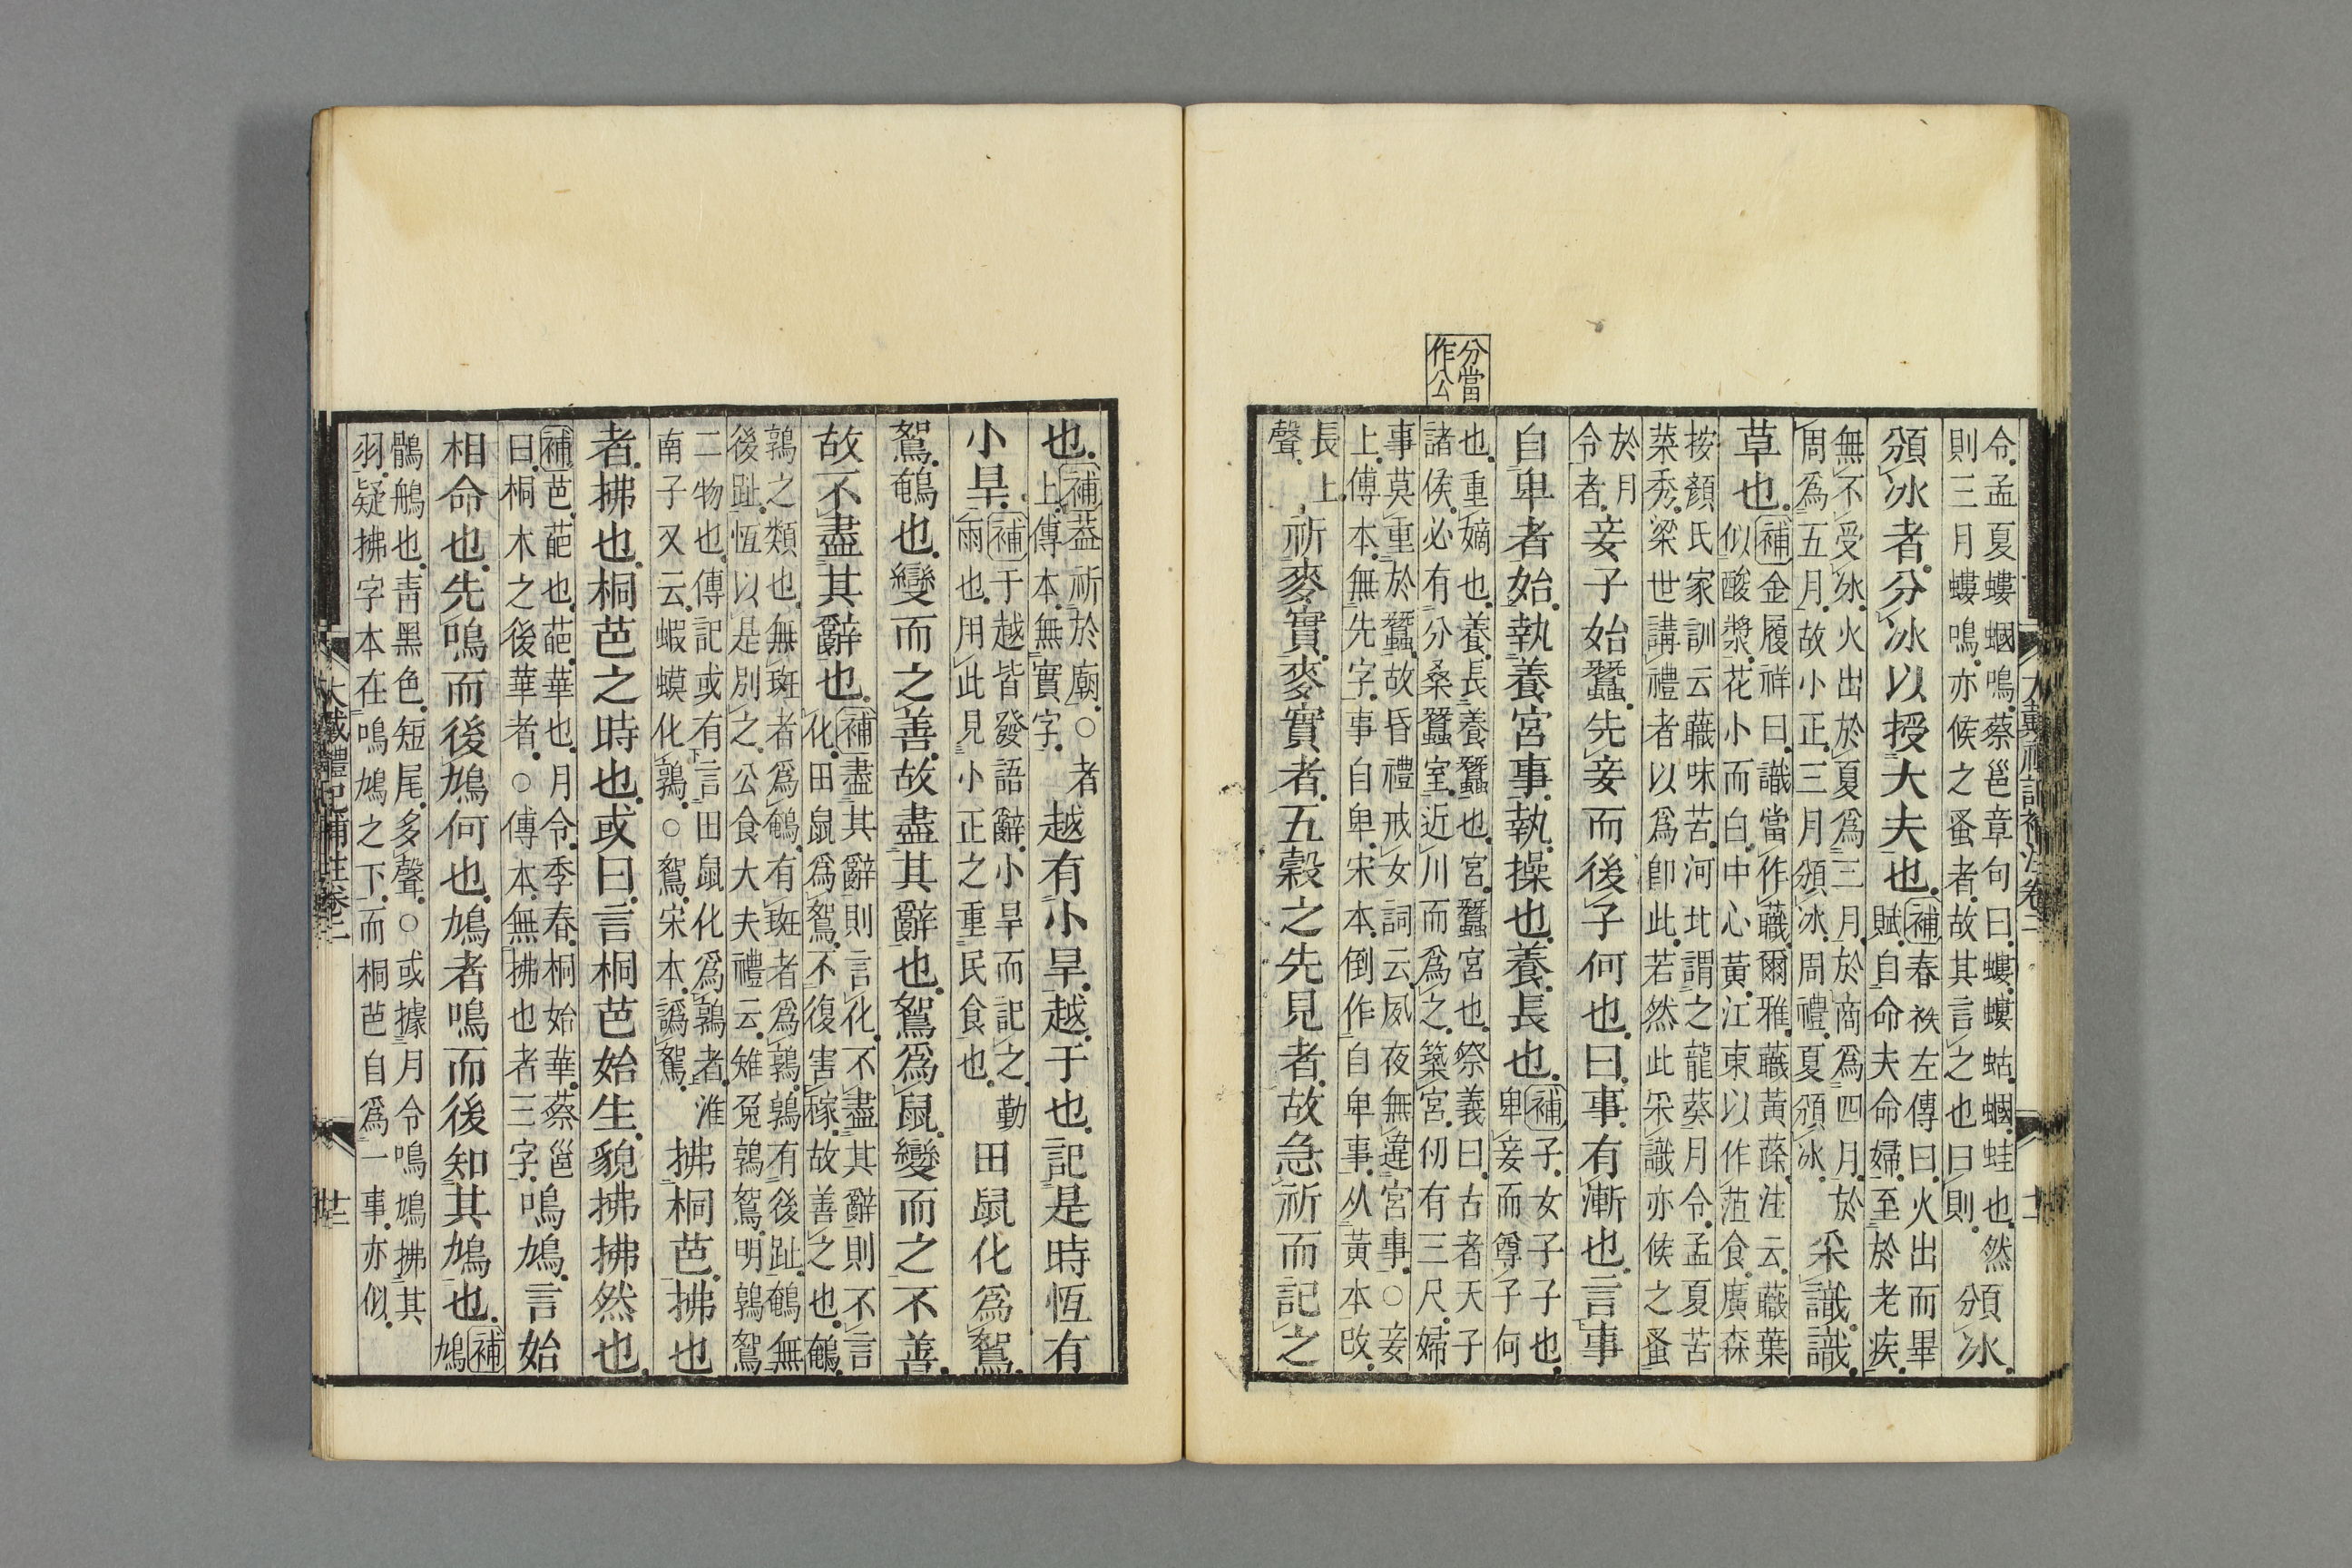 分當
作公
大戴禮記補注卷二
令孟夏螻蟈鳴蔡邕章句曰螻螻蛄蟈蛙也然
則三月螻鳴亦候之蚤者故其言之也曰則
頒冰
頒冰者分冰以授大夫也
補春秋左傳曰火出而畢
賦自命夫命婦至於老疾
無不受冰火出於夏爲三月於商爲四月於
周爲五月故小正三月頒冰周禮夏頒冰
采識識
草也
補金履祥曰識當作蘵爾雅蘵黃蒢注云蘵葉
似酸漿花小而白中心黃江東以作菹食廣森
按顏氏家訓云蘵味苦河北謂之龍葵月令孟夏苦
菜秀梁世講禮者以爲卽此若然此采識亦候之蚤
於月
令者
妾子始蠶先妾而後子何也曰事有漸也言事
自卑者始執養宮事執操也養長也
補子女子子也
卑妾而尊子何
也重嫡也養長養蠶也宮蠶宮也祭義曰古者天子
諸侯必有分桑蠶室近川而爲之築宮仞有三尺婦
事莫重於蠶故昏禮戒女詞云夙夜無違宮事○妾
上傅本無先字事自卑宋本倒作自卑事从黃本改
長上
聲
祈麥實麥實者五穀之先見者故急祈而記之
也
補葢祈於廟○者
上傅本無實字
越有小旱越于也記是時恆有
小旱
補于越皆發語辭小旱而記之勤
雨也用此見小正之重民食也
田鼠化爲鴽
鴽鵪也變而之善故盡其辭也鴽爲鼠變而之不善
故不盡其辭也
補盡其辭則言化不盡其辭則不言
化田鼠爲鴽不復害稼故善之也鵪
鶉之類也無斑者爲鵪有斑者爲鶉鶉有後趾鵪無
後趾恆以是別之公食大夫禮云雉兔鶉鴽明鶉鴽
二物也傳記或有言田鼠化爲鶉者淮
南子又云蝦蟆化鶉○鴽宋本譌駕
拂桐芭拂也
者拂也桐芭之時也或曰言桐芭始生貌拂拂然也
補芭葩也葩華也月令季春桐始華蔡邕
曰桐木之後華者○傅本無拂也者三字
鳴鳩言始
相命也先鳴而後鳩何也鳩者鳴而後知其鳩也
補
鳩
鶻鵃也靑黑色短尾多聲○或據月令鳴鳩拂其
羽疑拂字本在鳴鳩之下而桐芭自爲一事亦似
大戴禮記補注卷二
廿二